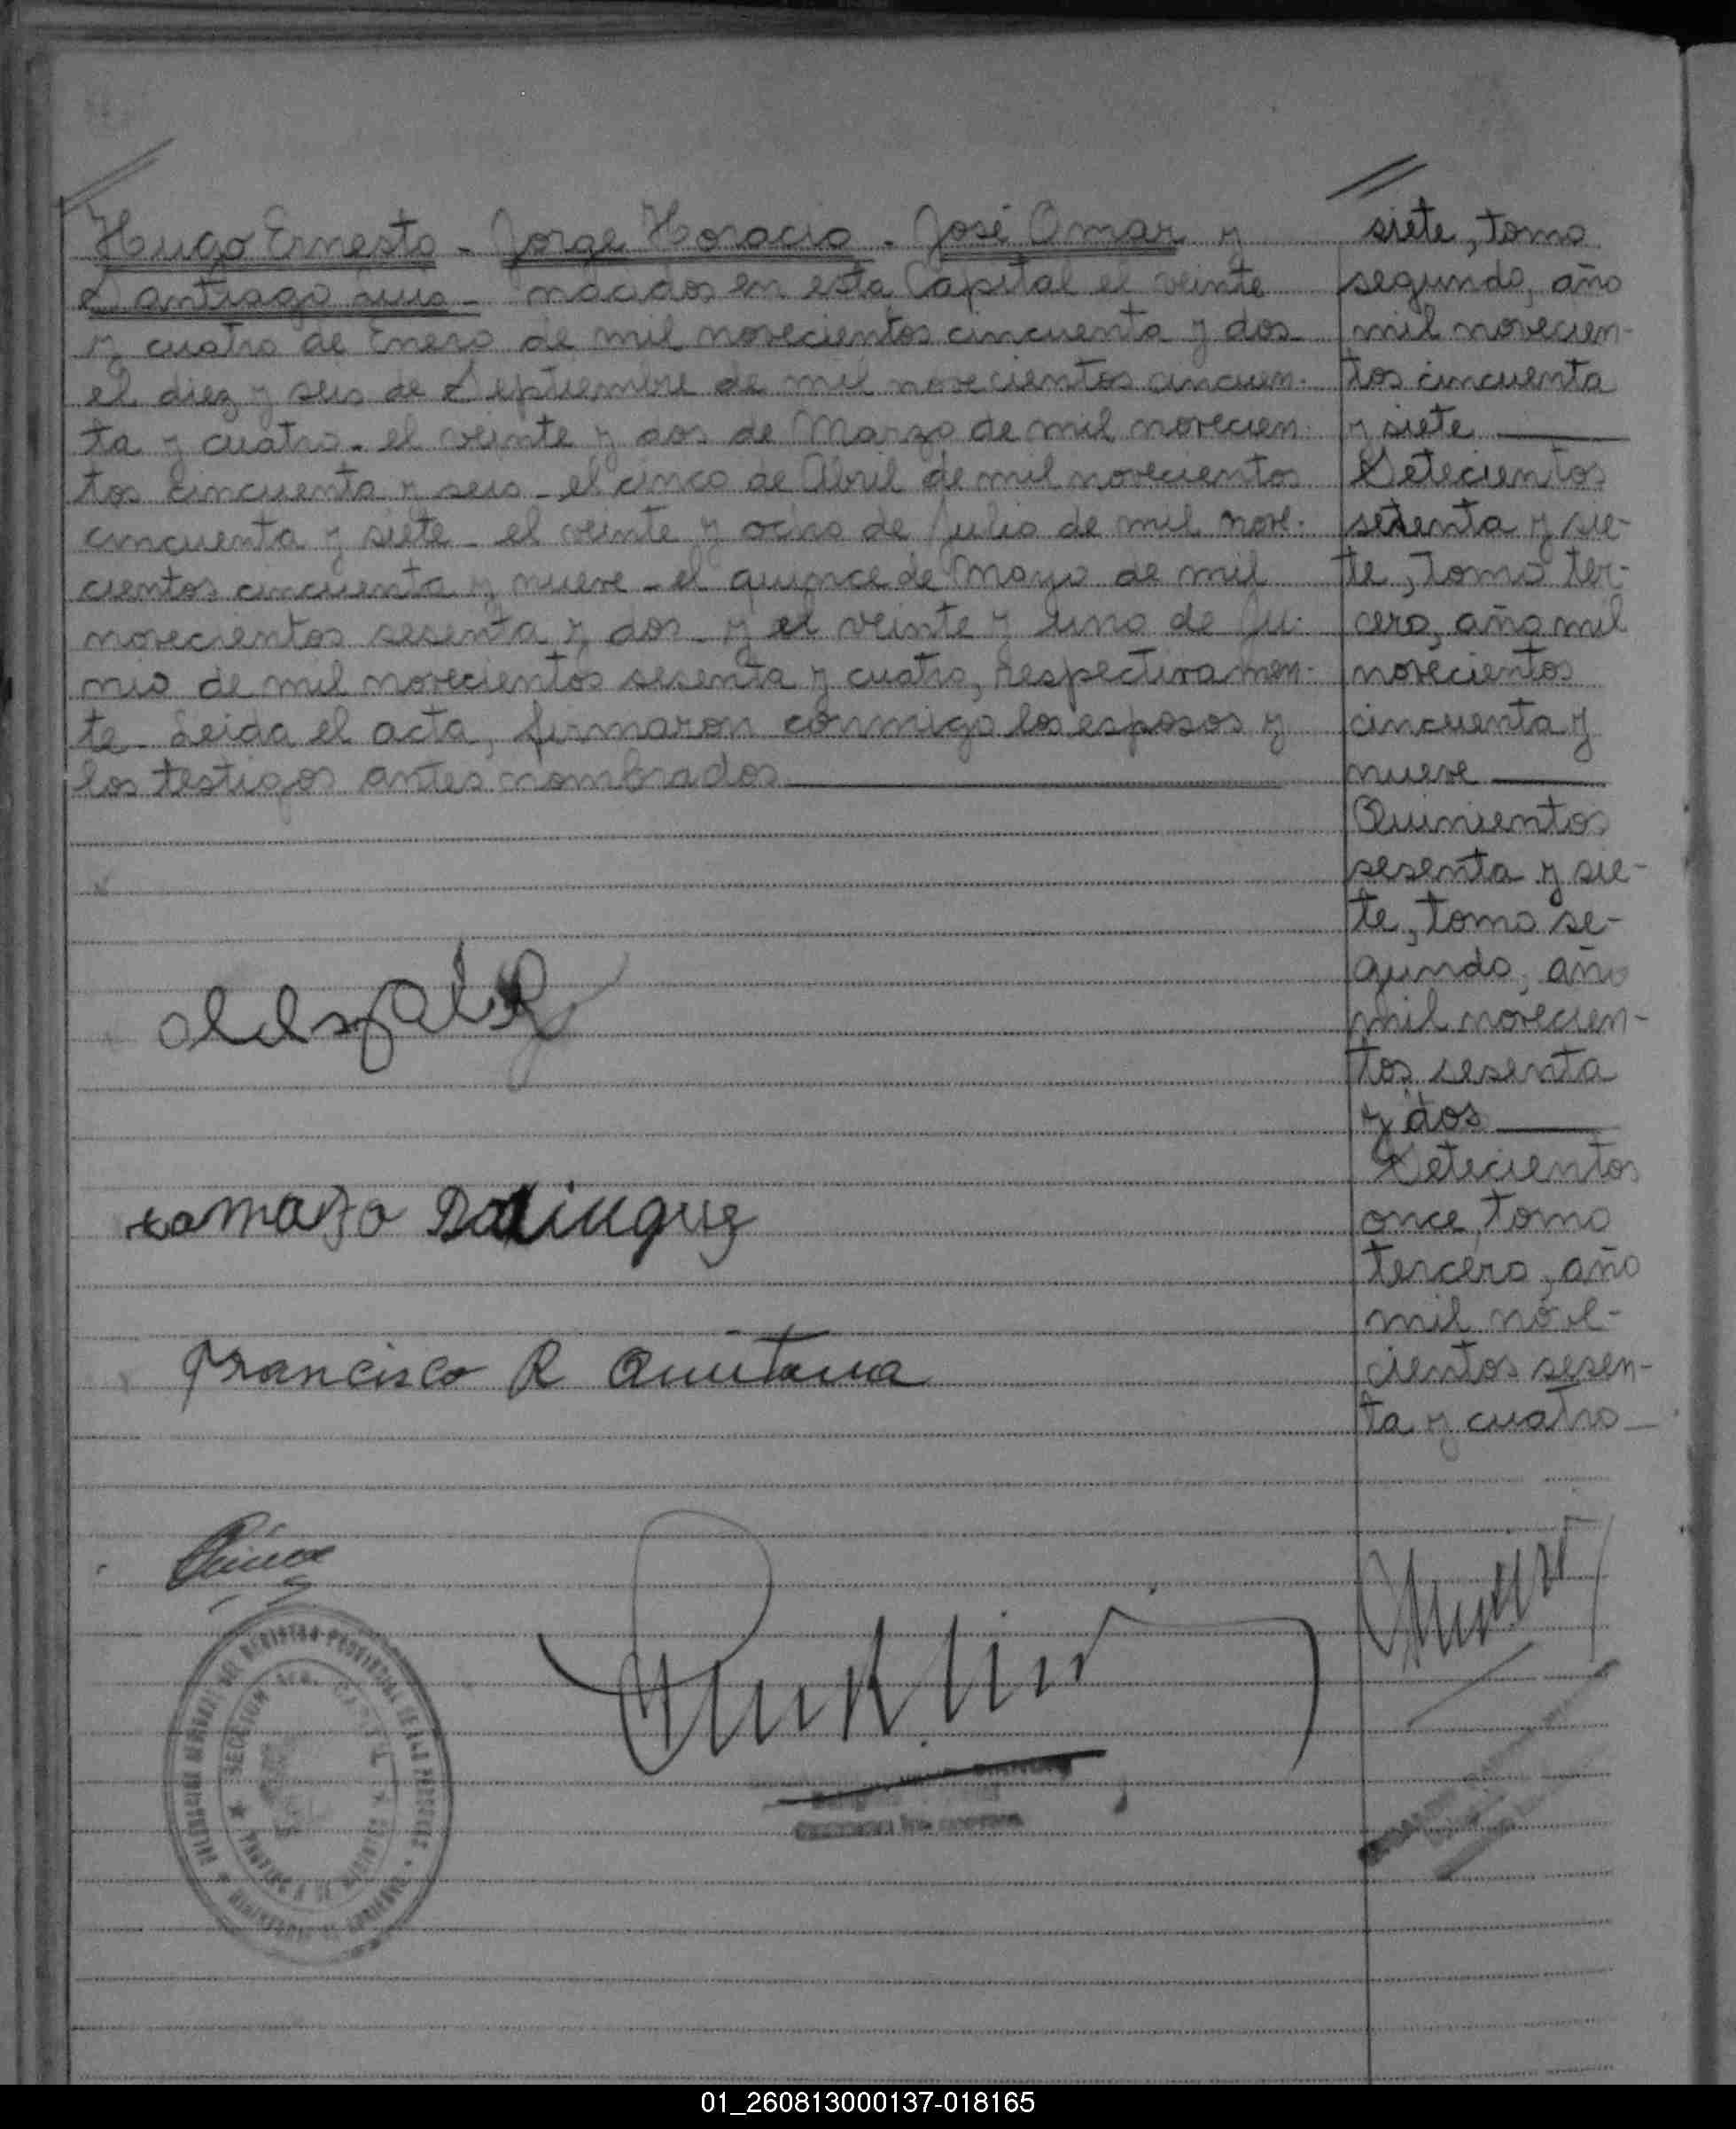 Hugo Ernesto - Jorge Horacio - José Omar y
Santiago Luis - nacidos en esta Capital el veinte
y cuatro de Enero de mil novecientos cincuenta y dos
el diez y seis de Septiembre de mil novecientos cincuen-
ta y cuatro - el veinte y dos de Marzo de mil novecien-
tos cincuenta y seis - el cinco de Abril de mil novecientos
cincuenta y siete - el veinte y ocho de Julio de mil nove-
cientos cincuenta y nueve - el quince de Mayo de mil
novecientos sesenta y dos - y el veinte y uno de Ju-
nio de mil novecientos sesenta y cuatro, respectivamen-
te - Leida el acta, firmaron conmigo los esposos y
los testigos antes nombrados
Francisco R Quintana
SECCION
siete, tomo
segundo, año
mil novecien-
tos cincuenta
y siete
Setecientos
setenta y sie-
te, tomo ter-
cero, año mil
novecientos
cincuenta y
nueve
Quinientos
sesenta y sie-
te, tomo se-
gundo, año
mil novecien-
tos sesenta
y dos
Setecientos
once, tomo
tercero, año
mil nove-
cientos sesen-
ta y cuatro
01_260813000137-018165